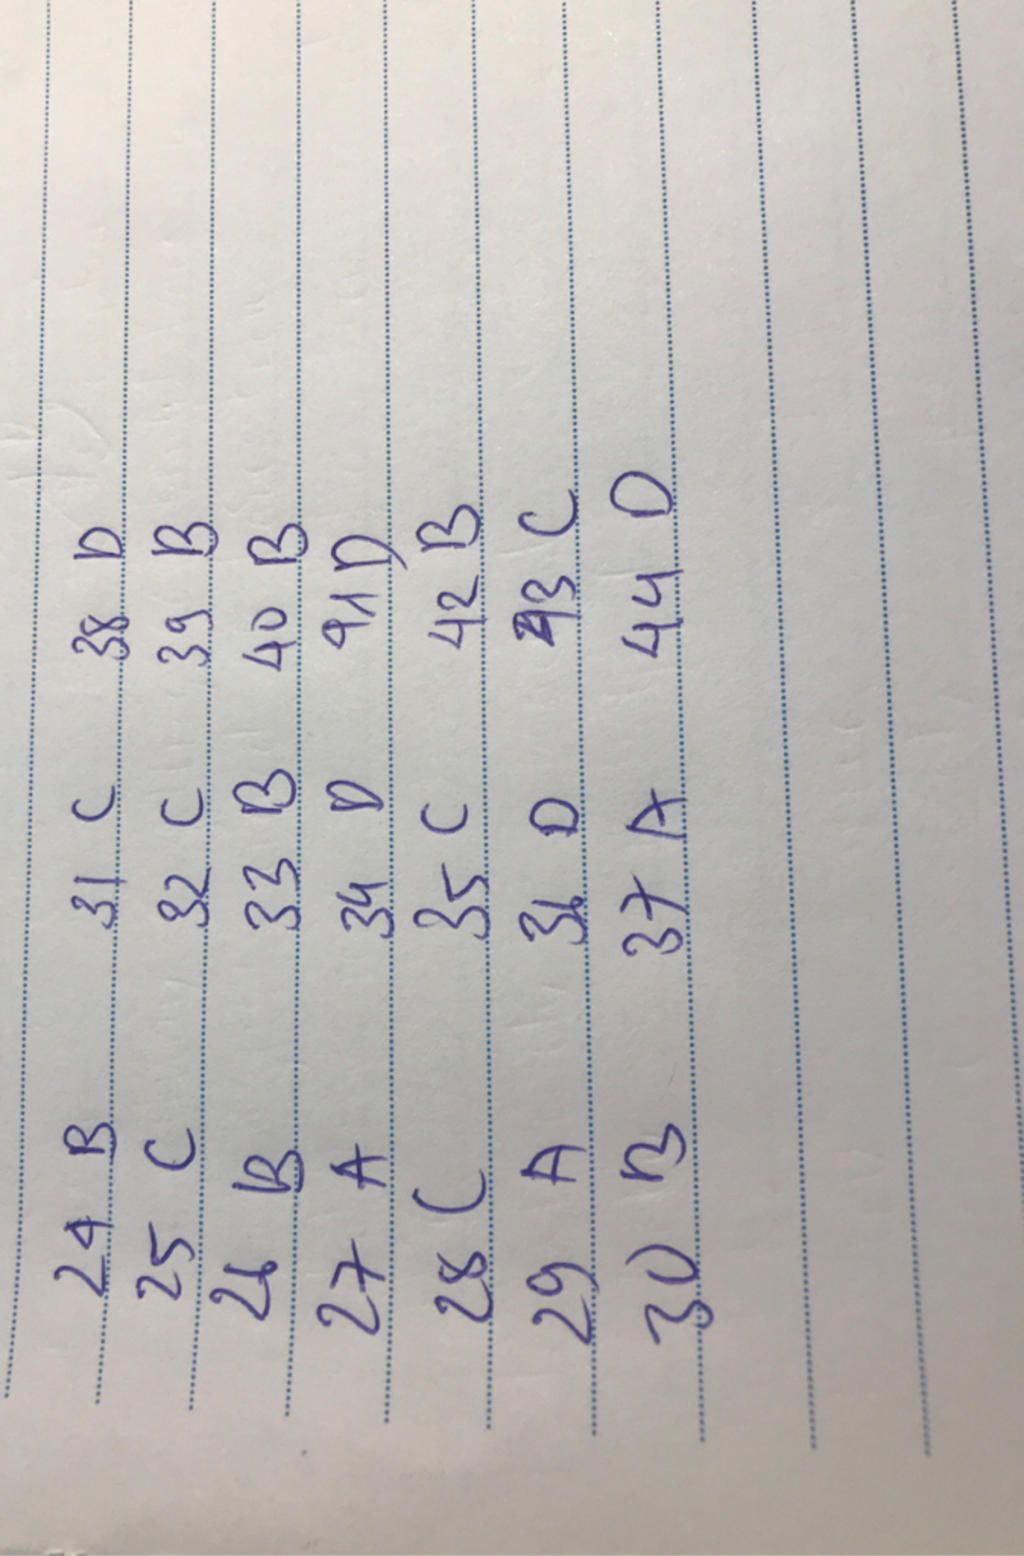 24 B 31 C 38 D
25 C 32 C 39 B
26 B 33 B 40 B
27 A 34 D 41 D
28 C 35 C 42 B
29 A 36 D 43 C
30 B 37 A 44 D